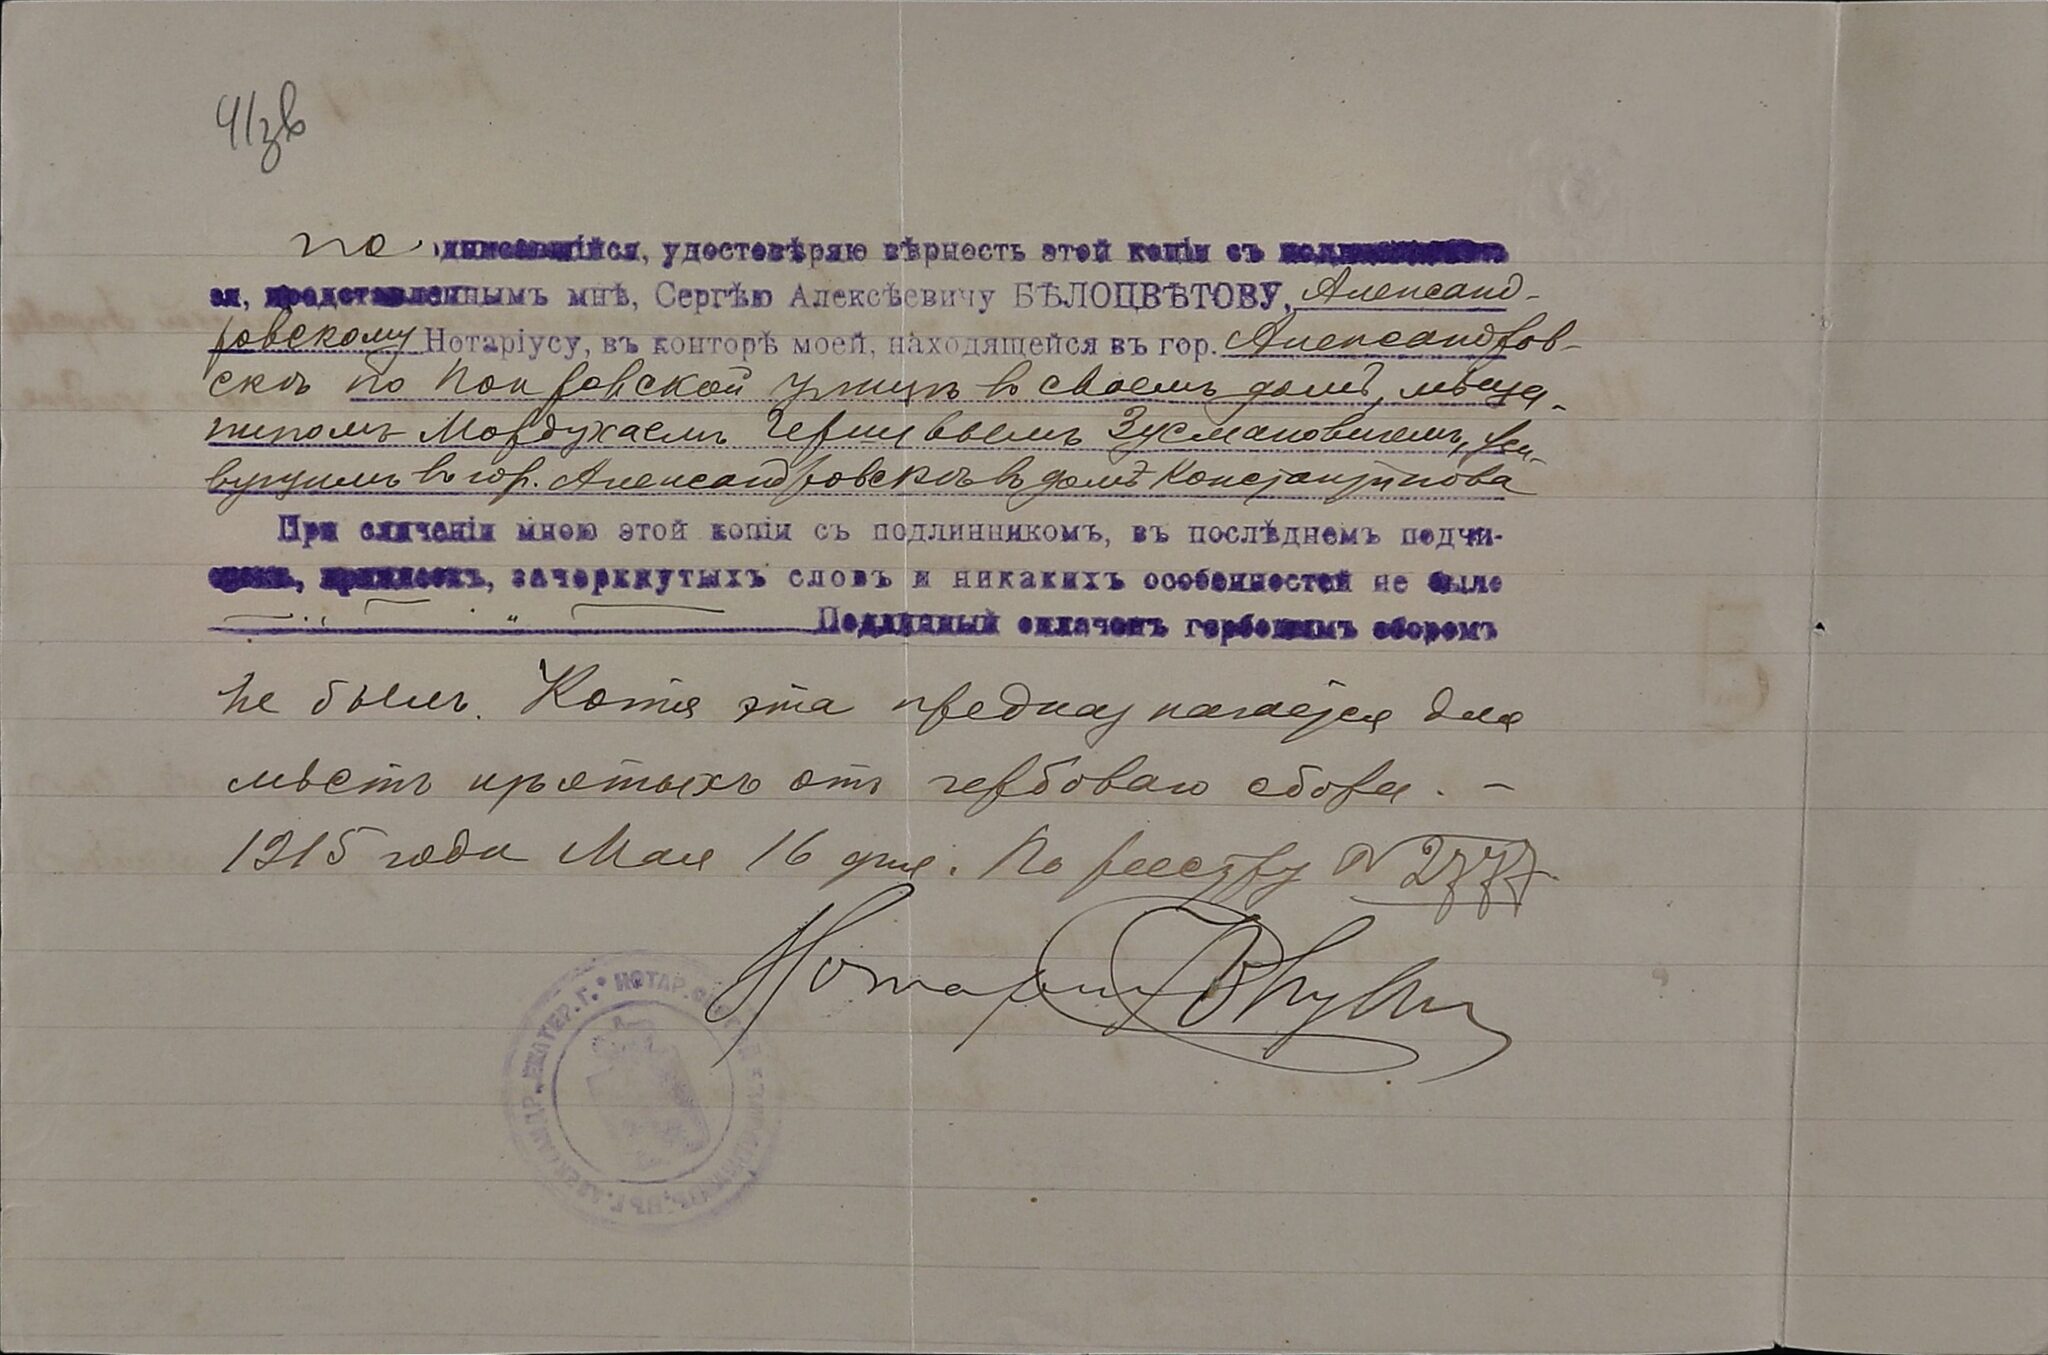 по дписавшійся, удостовѣряю вѣрность этой копіи съ подлинникомъ
ея, представленнымъ мнѣ, Сергѣю Алексѣевичу БѢЛОЦВѢТОВУ, Александ-
ровскому Нотаріусу, въ конторѣ моей, находящейся въ гор. Александров-
скѣ по Покровской улицѣ въ своемъ домѣ, мѣща-
ниномъ Мордухаемъ Гершевымъ Зусмановичемъ, жи-
вущимъ въ гор. Александровскѣ въ домѣ Константинова
При сличеніи мною этой копіи съ подлинникомъ, въ послѣднемъ подчи-
стокъ, приписокъ, зачеркнутыхъ словъ и никакихъ особенностей не было
Подлинный оплаченъ гербовымъ сборомъ
не былъ. Копія эта предназначается для
мѣстъ изъятыхъ отъ гербоваго сбора. -
1915 года Мая 16 дня. По реестру № 2777
Нотаріусъ